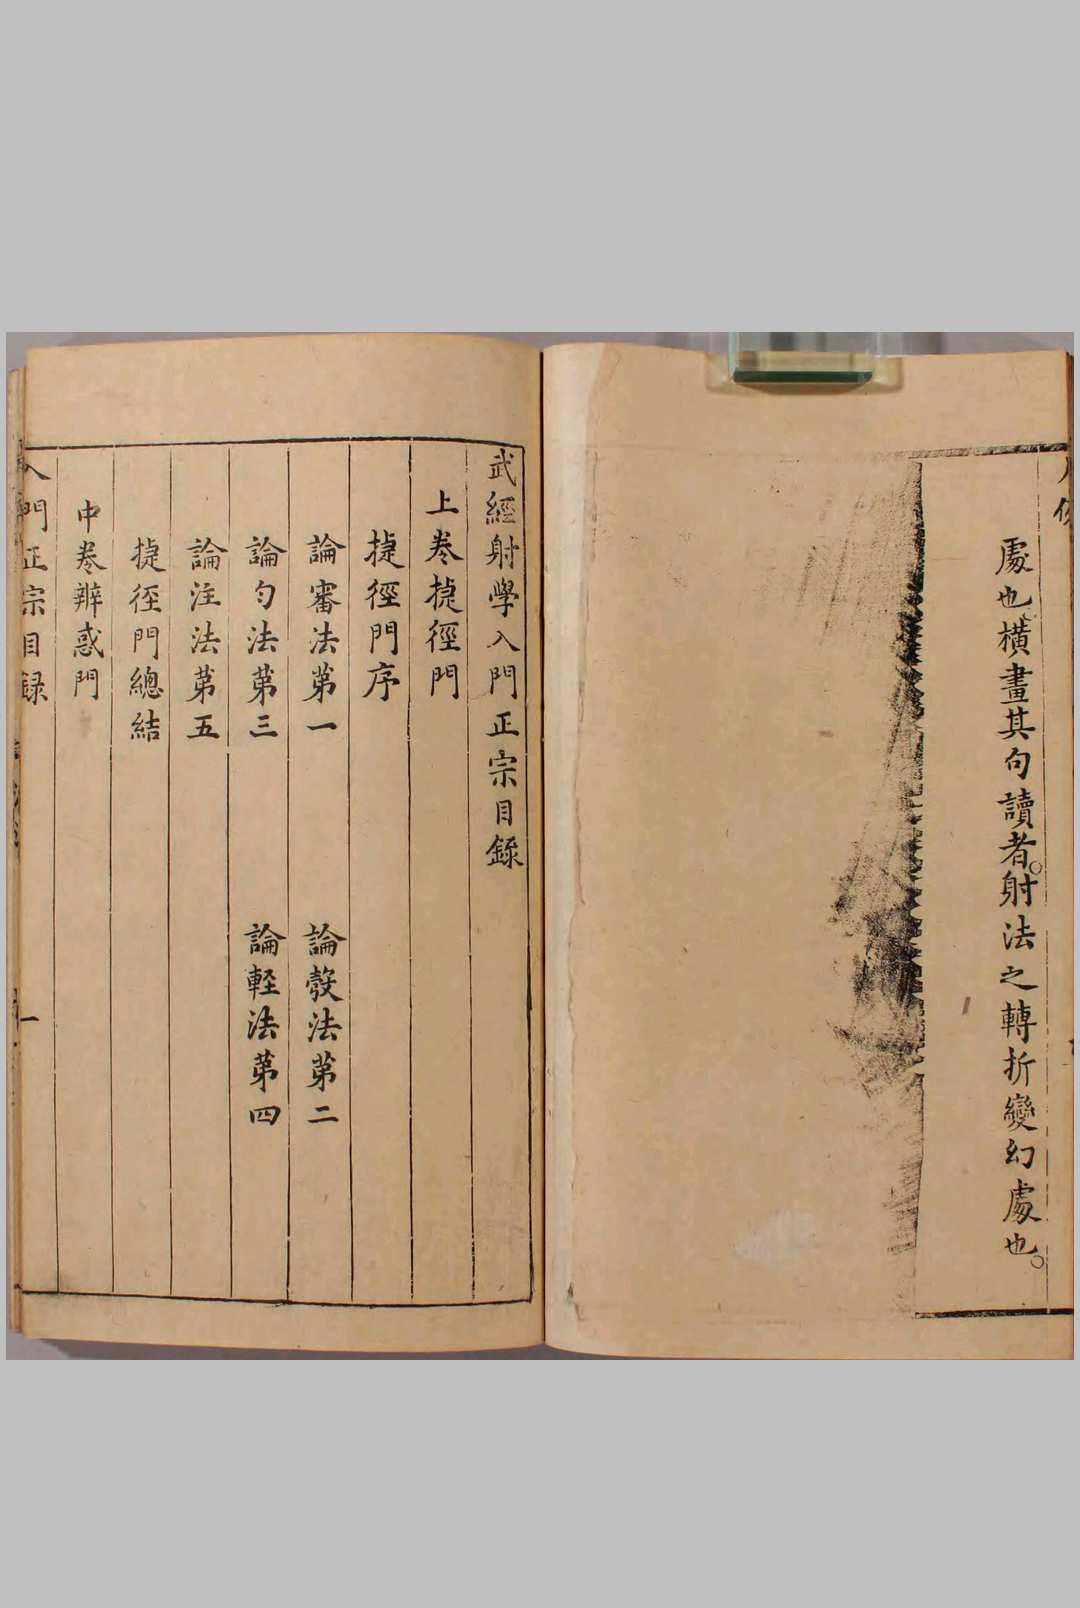 處也橫畫其句讀者。射法之轉折變幻處也。
武經射學入門正宗目錄
上卷捷徑門
捷徑門序
論審法第一 論彀法第二
論勻法第三 論輕法第四
論注法第五
捷徑門總結
中卷辨惑門
入門正宗目録 一